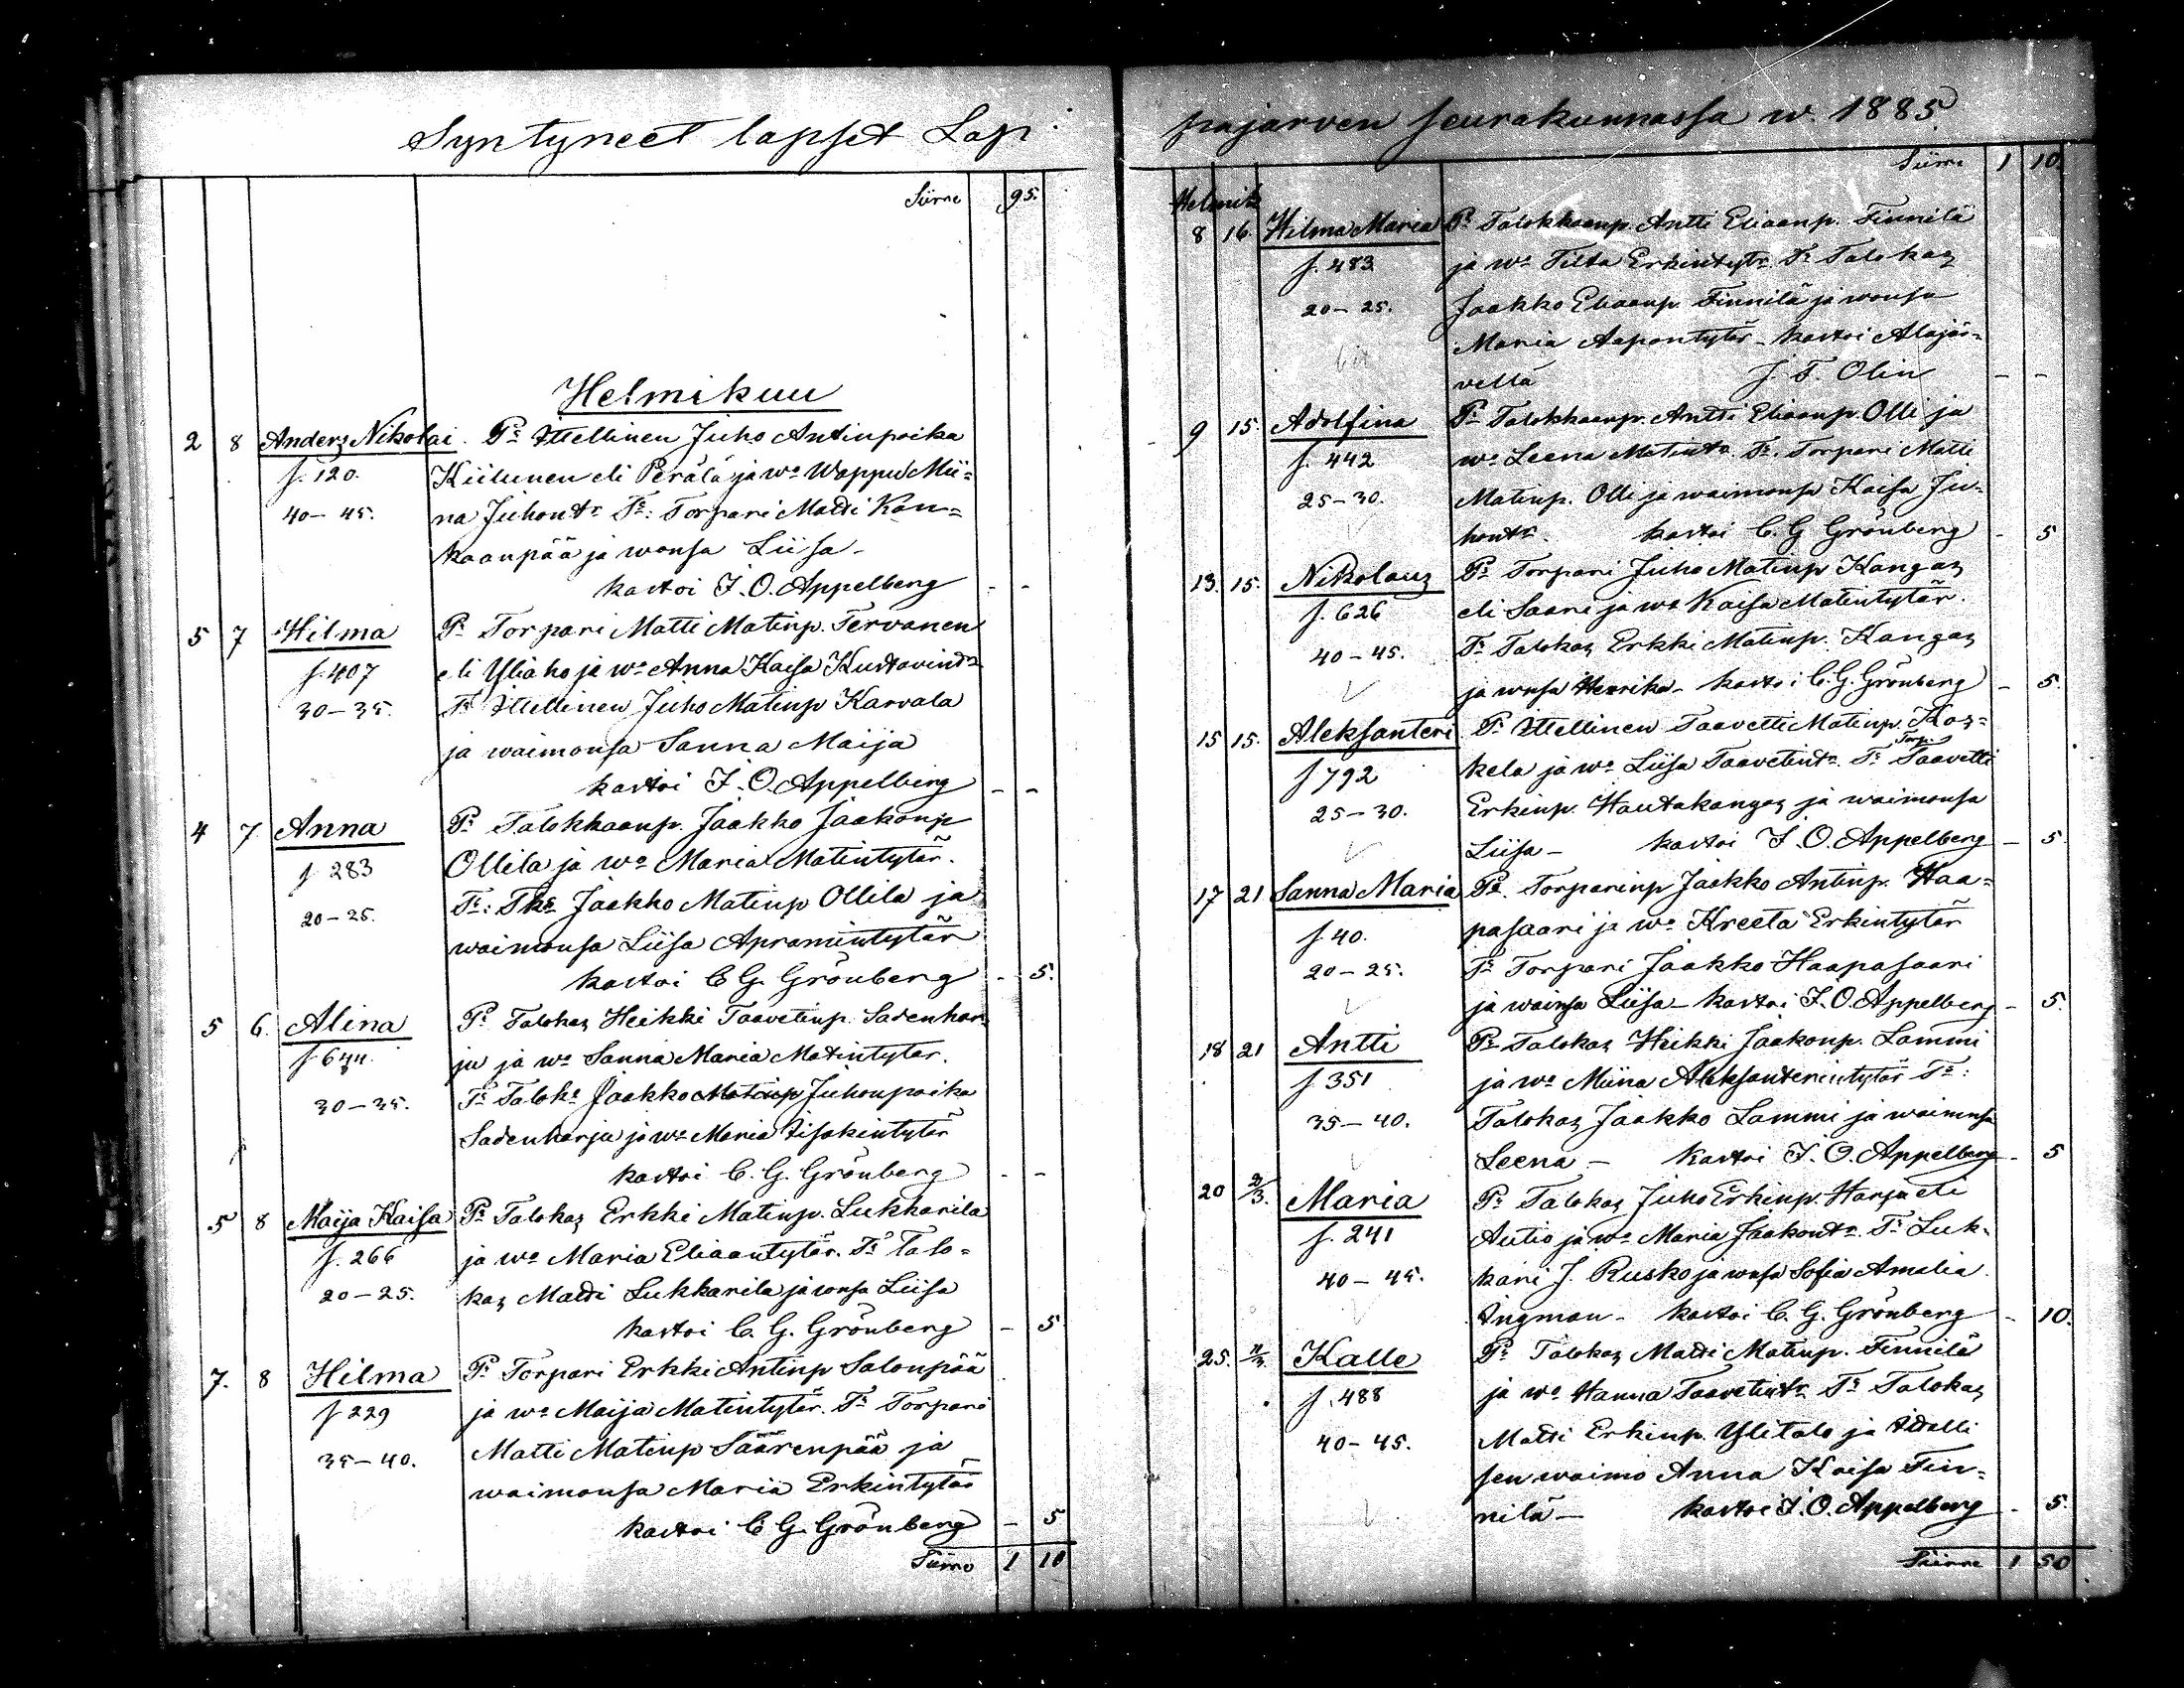 Syntyneet lapset Lap-
Siirre 95.
Helmikuu
2 8 Anders Nikolai. Pr Ittellinen Juho Antinpoika
f. 120. Kiilunen eli Perälä ja wo Wappu Mii=
40-45. na Juhontr Tr: Torpari Matti Kan=
kaanpää ja wonsa Liisa-
kastoi J. O. Appelberg - -
5 7 Hilma Pr Torpari Matti Matinp. Tervanen
f. 407 eli Yliaho ja wo Anna Kaisa Kustavintr
30-35. Tr Ittellinen Juho Matinp Karvala
ja waimonsa Sanna Maija
kastoi J. O. Appelberg - -
4 7. Anna Pr Talokkaanp. Jaakko Jaakonp
f 283 Ollila ja wo Maria Matintytär.
20-25. Tr: Tks Jaakko Matinp Ollila ja
waimonsa Liisa Apramintytär
kastoi C G. Grönberg - 5.
5 6. Alina Pr Talokas Heikki Taavetinp. Sadenhar=
f 644. ju ja wo Sanna Maria Matintytär.
30-35. Tr Taloks Jaakko Juhonpoika
Sadenharju ja wo Maria Iisakintytär
kastoi C. G. Grönberg - -
5 8 Maija Kaisa Pr Talokas Erkki Matinp. Lukkarila
f. 266 ja wo Maria Eliaantytär. Tr Talo=
20-25. kas Matti Lukkarila ja wonsa Liisa
kastoi C. G. Grönberg - 5.
7. 8 Hilma Pr Torpari Erkki Antinp Salonpää
f 229 ja wo Maija Matintytär. Tr Torpari
35-40. Matti Matinp Säärenpää ja
waimonsa Maria Erkintytär
kastoi C G. Grönberg - 5
Siirre 1 10
pajärven seurakunnassa w. 1885
Siirre 1 10.
Helmik
8 16. Hilma Maria Pr Talokkaanp. Antti Eliaanp. Finnilä
f. 483 ja wo Tilta Erkintytr Tr Talokas
20-25. Jaakko Eliaanp. Finnilä ja wonsa
Maria Aapontytär- kastoi Alajär=
vellä J. F. Olin - -
9 15. Adolfina Pr Talokkaanp. Antti Eliaanp. Olli ja
f. 442 wo Leena Matintr Tr. Torpari Matti
25-30. Matinp. Olli ja waimonsa Kaisa Ju=
hontr. kastoi C. G Grönberg - 5
13. 15. Nikolaus Pr Torpari Juho Matinp Kangas
f. 626 eli Saari ja wo Kaisa Matintytär.
40-45. Tr Talokas Erkki Matinp. Kangas
ja wnsa Henrika- kastoi C. G. Grönberg - 5.
15 15. Aleksanteri Pr Ittellinen Taavetti Matinp. Kos=
f 792 kela ja wo Liisa Taavetintr. Tr Torp. Taavetti
25-30. Erkinp. Hautakangas ja waimonsa
Liisa- kastoi J. O. Appelberg - 5.
17 21 Sanna Maria Pr. Torparinp Jaakko Antinp. Haa=
f 40. pasaari ja wo Kreeta Erkintytär
20-25. Tr Torpari Jaakko Haapasaari
ja wainsa Liisa- kastoi J. O. Appelberg - 5.
18 21 Antti Pr Talokas Heikki Jaakonp. Lammi
f. 351 ja wo Miina Aleksanterintytär Tr:
35-40. Talokas Jaakko Lammi ja waimonsa
Leena- kastoi J. O. Appelberg - 5
20 2/3. Maria Pr Talokas Juho Erkinp. Harju eli
f. 241 Autio ja wo Maria Jaakontr. Tr Luk=
40-45. kari J. Rusko ja wnsa Sofia Amalia
Ingman- kastoi C. G. Grönberg - 10.
25. Kalle Pr Talokas Matti Matinp. Finnilä
f. 488 ja wo Hanna Taavetintr. Tr Talokas
40-45. Matti Erkinp. Ylitalo ja Itelli
sen waimo Anna Kaisa Fin=
nilä- kastoi J. O. Appelberg - 5.
Siirre 1 50